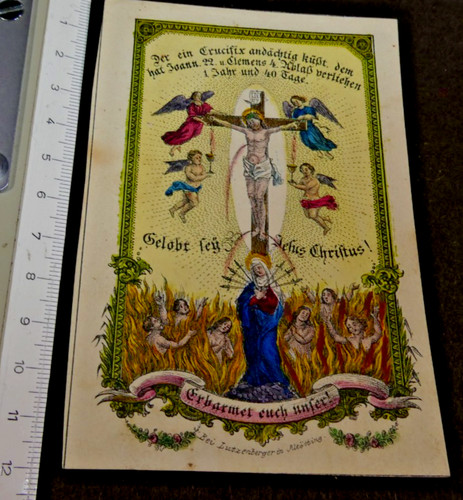 Der ein Crucifix andächtig küßt, dem
hat Joann. 22. u Clemens 4. Ablaß verliehen
1 Jahr und 40 Tage.
Gelobt sey Jesus Christus!
Erbarmet euch unser!
Bei Lutzenberger in
2
3
4
5
6
7
8
9
10
11
12